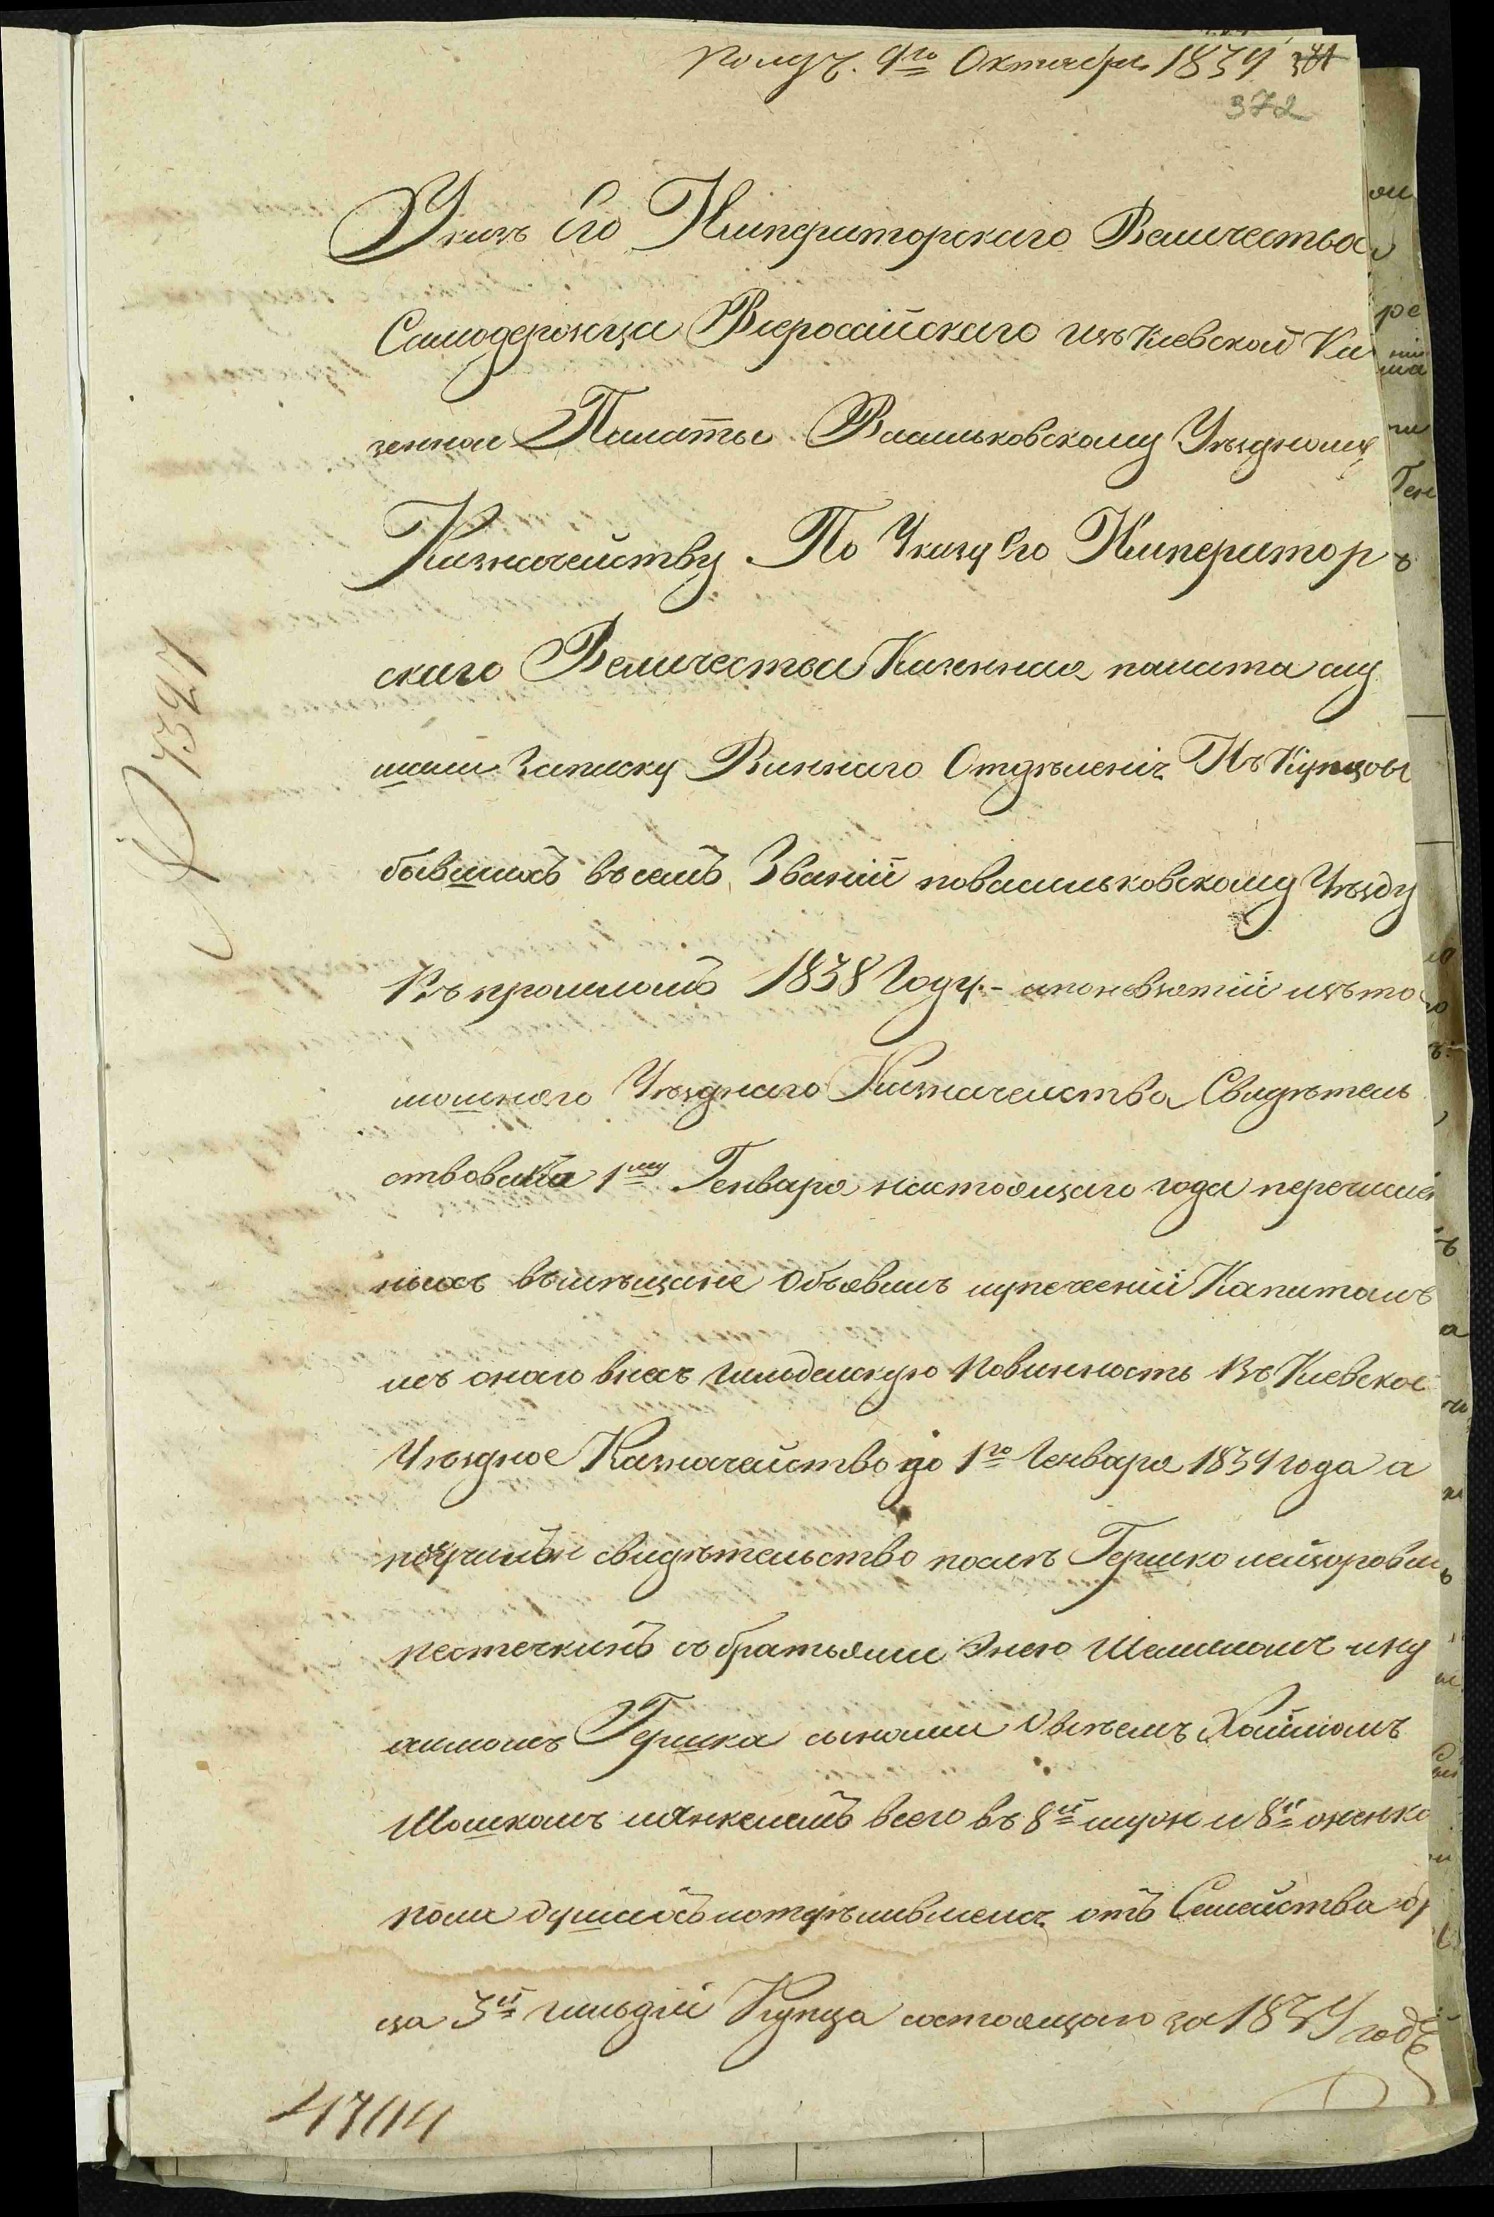 Получ. 9го Октября 1839
372
Указъ Его Императорскаго Величества
Самодержца Всероссійскаго изъ Кіевской Ка
зенной Палаты Васильковскому Уѣздному
Казначейству. По Указу Его Император
скаго Величества Казенная палата слу
шали Записку Виннаго Отдѣленія Изъ Купцовъ
бывшихъ въ семъ Званій по васильковскому Уѣзду
Въ прошломъ 1838 Году - а по невзятій изъ та
мошняго Уѣзднаго Казначейства Свидѣтель
ствова 1му Генваря настоящаго года перечислен
ныхъ въ мѣщане Объявилъ купеческій Капиталъ
исъ онаго внесъ гильдейскую Повинность Въ Кіевское
Уѣздное Казначейство до 1го Генваря 1839 года а
получилъ свидѣтельство послѣ Гершко лейзоровъ
пестечкинъ съ братьями Энею Шлиомомъ и ку
симомъ Гершка сынами Овсѣемъ Хаимомъ
Шошкомъ и Янкелемъ всего въ 8й муж и 8й женско
пола душахъ и отдѣлившемся отъ Семейства бр
ца 3й гильдіи Купца состоящаго за 1839 годъ
№ 7321
41144